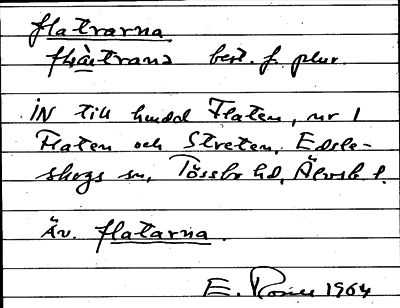 flatrarna
best. f. plur.
IN till hmdd Flaten, nr 1
Flaten och Streten, Edsle-
skogs sn, Tössbo hd, Älvsb. l.
Äv. flatarna.
E. 1964